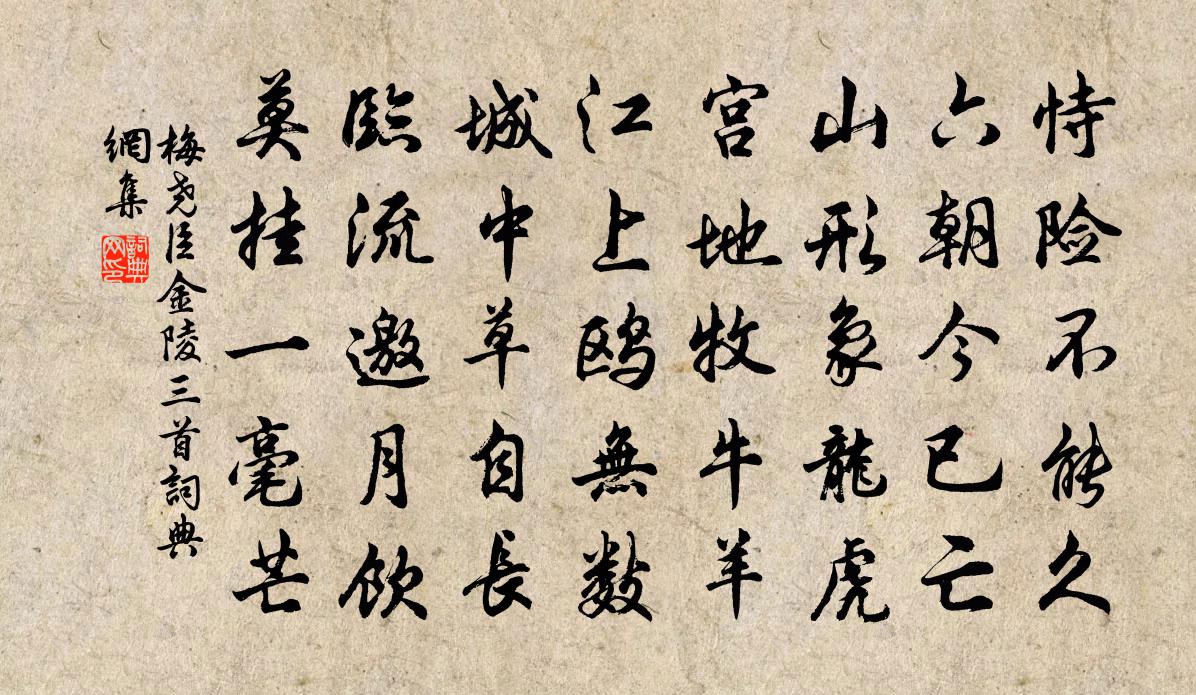 恃险不能久
六朝今已亡
山形象龍虎
宫地牧牛羊
江上鸥無数
城中草自長
臨流邀月飲
莫挂一毫芒
梅尧臣金陵三首詞典
網集
詞典
网印